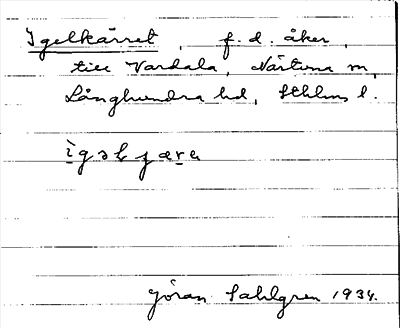 Igelkärret, f. d. åker,
till Vardala, Närtuna sn,
Långhundra hd, Sthlms l.
ìgəlçæra
Göran Sahlgren 1934.